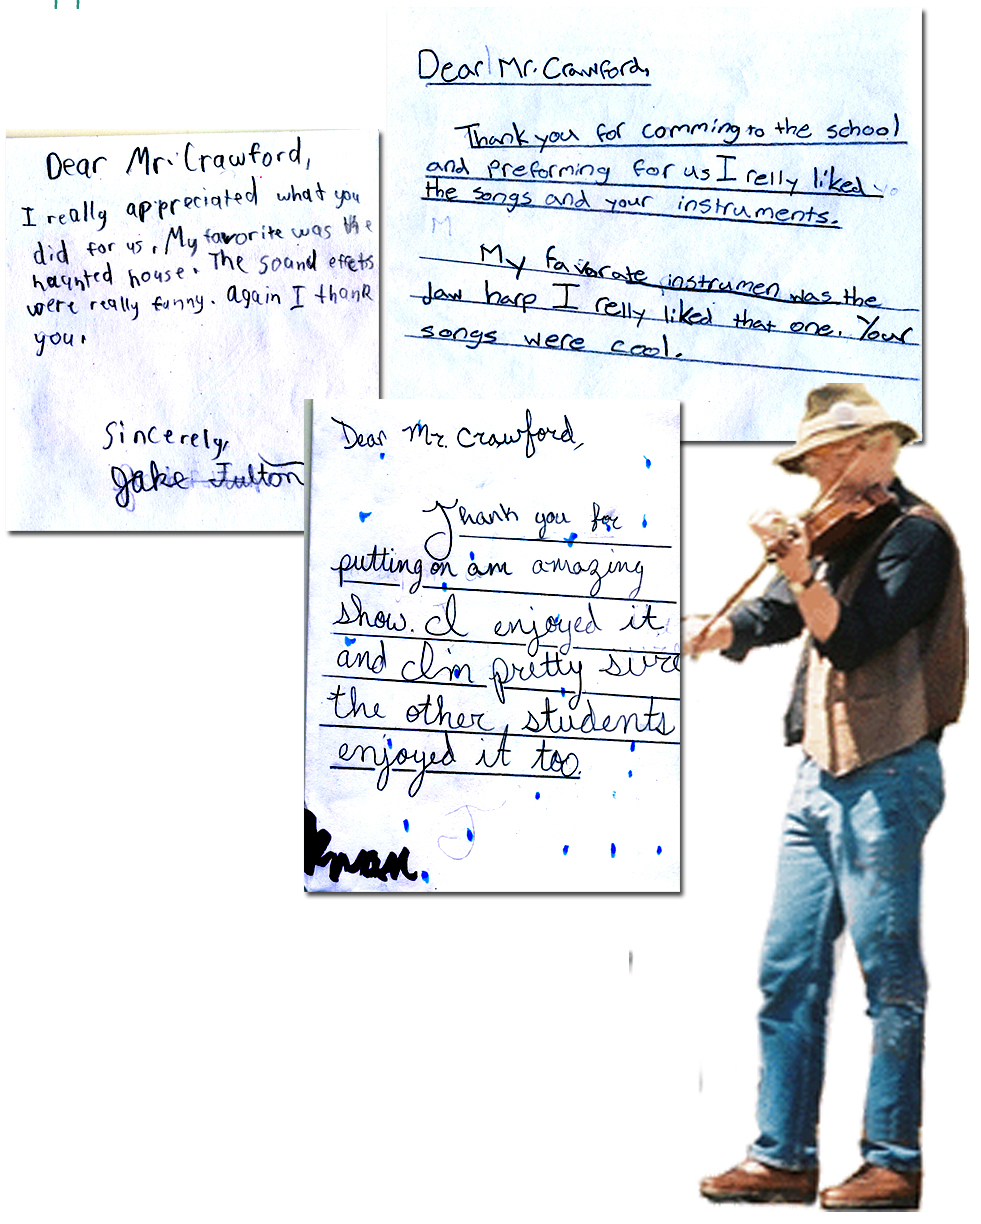 Dear Mr. Crawford,
I really appreciated what you
did for us. My favorite was the
haunted house. The sound effets
were really funny. again I thank
you.
Sincerely,
Jake Fulton
Dear Mr. Crawford,
Thank you for comming to the school
and preforming for us I relly liked
the songs and your instruments.
My favarate instrumen was the
Jaw harp I relly liked that one. Your
songs were cool.
Dear Mr. Crawford,
Thank you for
putting on am amazing
show. I enjoyed it
and I'm pretty sure
the other students
enjoyed it too.